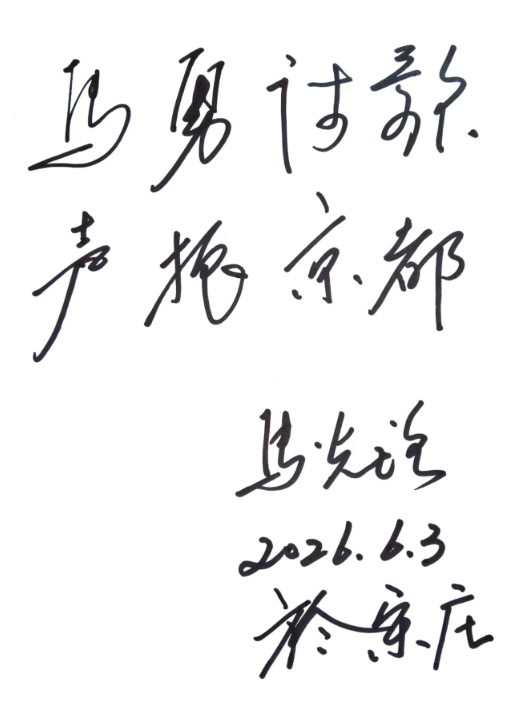 马勇诗歌
声振京都
马先
2026.6.3
於宋庄